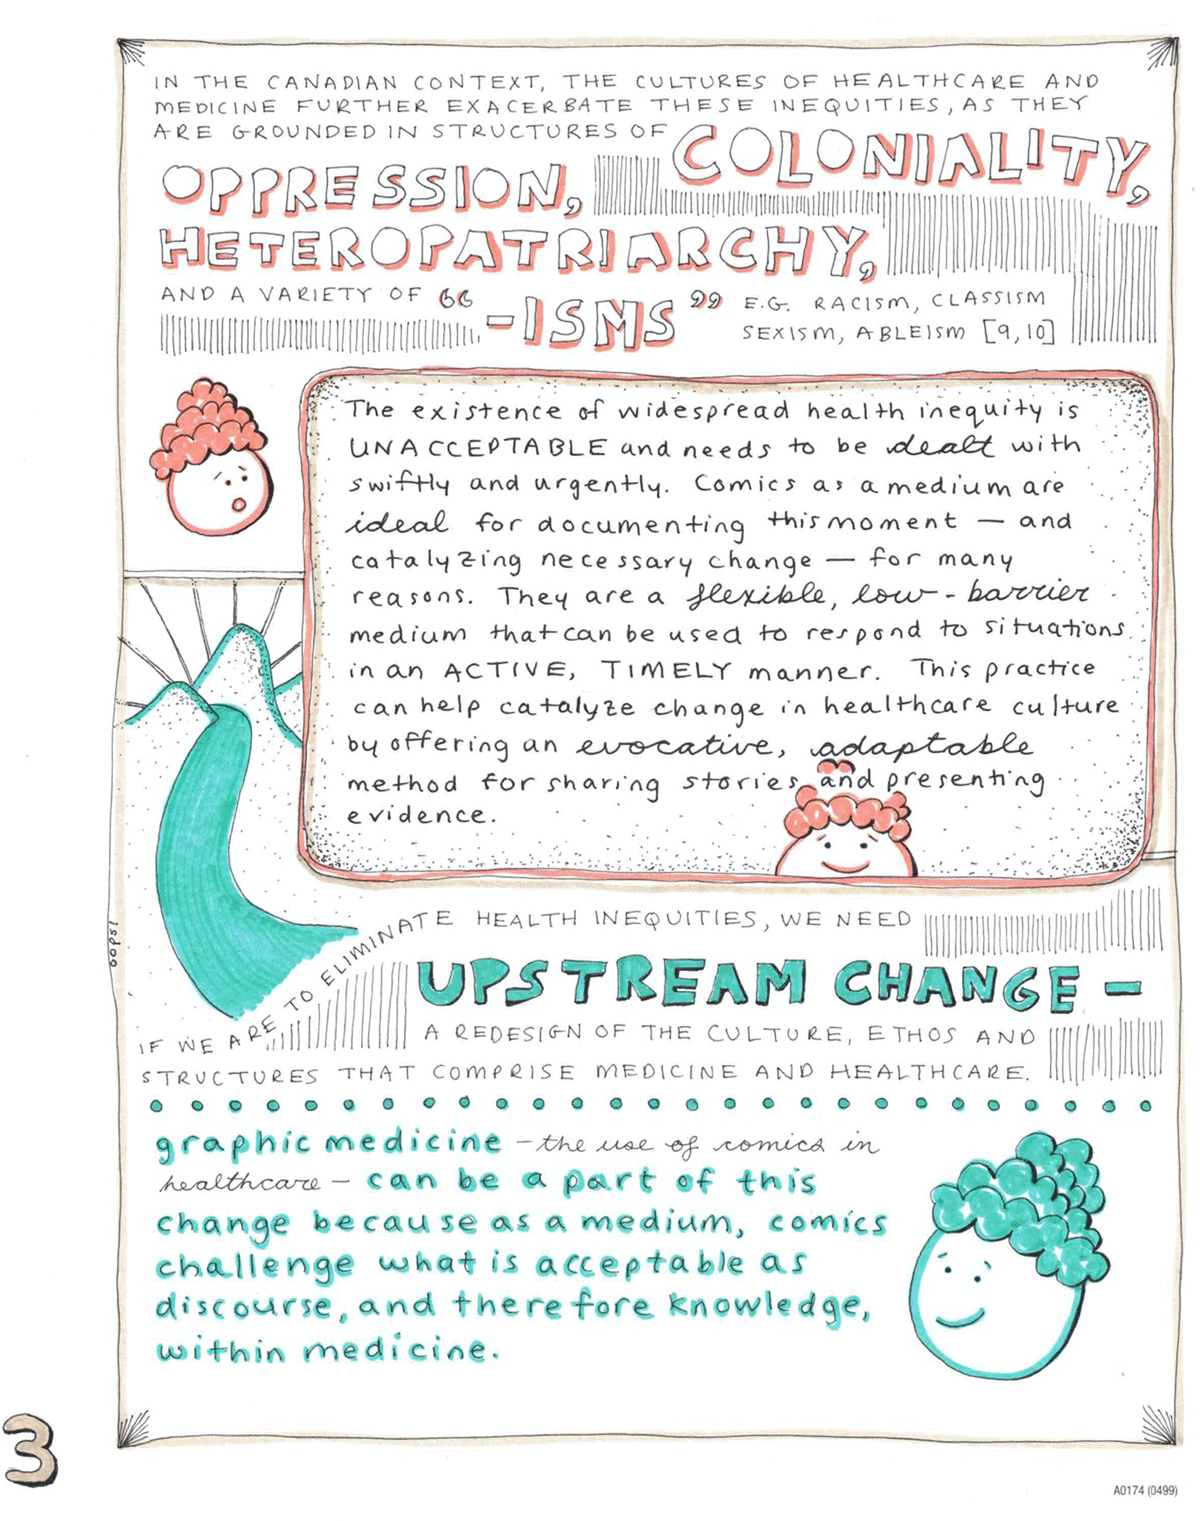 IN THE CANADIAN CONTEXT, THE CULTURES OF HEALTHCARE AND
MEDICINE FURTHER EXACERBATE THESE INEQUITIES, AS THEY
ARE GROUNDED IN STRUCTURES OF COLONIALITY,
OPPRESSION,
HETEROPATRIARCHY,
AND A VARIETY OF “-ISMS” E.G. RACISM, CLASSISM
SEXISM, ABLEISM [9,10]
The existence of widespread health inequity is
UNACCEPTABLE and needs to be dealt with
swiftly and urgently. Comics as a medium are
ideal for documenting this moment — and
catalyzing necessary change — for many
reasons. They are a flexible, low-barrier
medium that can be used to respond to situations
in an ACTIVE, TIMELY manner. This practice
can help catalyze change in healthcare culture
by offering an evocative, adaptable
method for sharing stories and presenting
evidence.
oops!
IF WE ARE TO ELIMINATE HEALTH INEQUITIES, WE NEED
UPSTREAM CHANGE —
A REDESIGN OF THE CULTURE, ETHOS AND
STRUCTURES THAT COMPRISE MEDICINE AND HEALTHCARE.
graphic medicine — the use of comics in
healthcare — can be a part of this
change because as a medium, comics
challenge what is acceptable as
discourse, and therefore knowledge,
within medicine.
3
A0174 (0499)